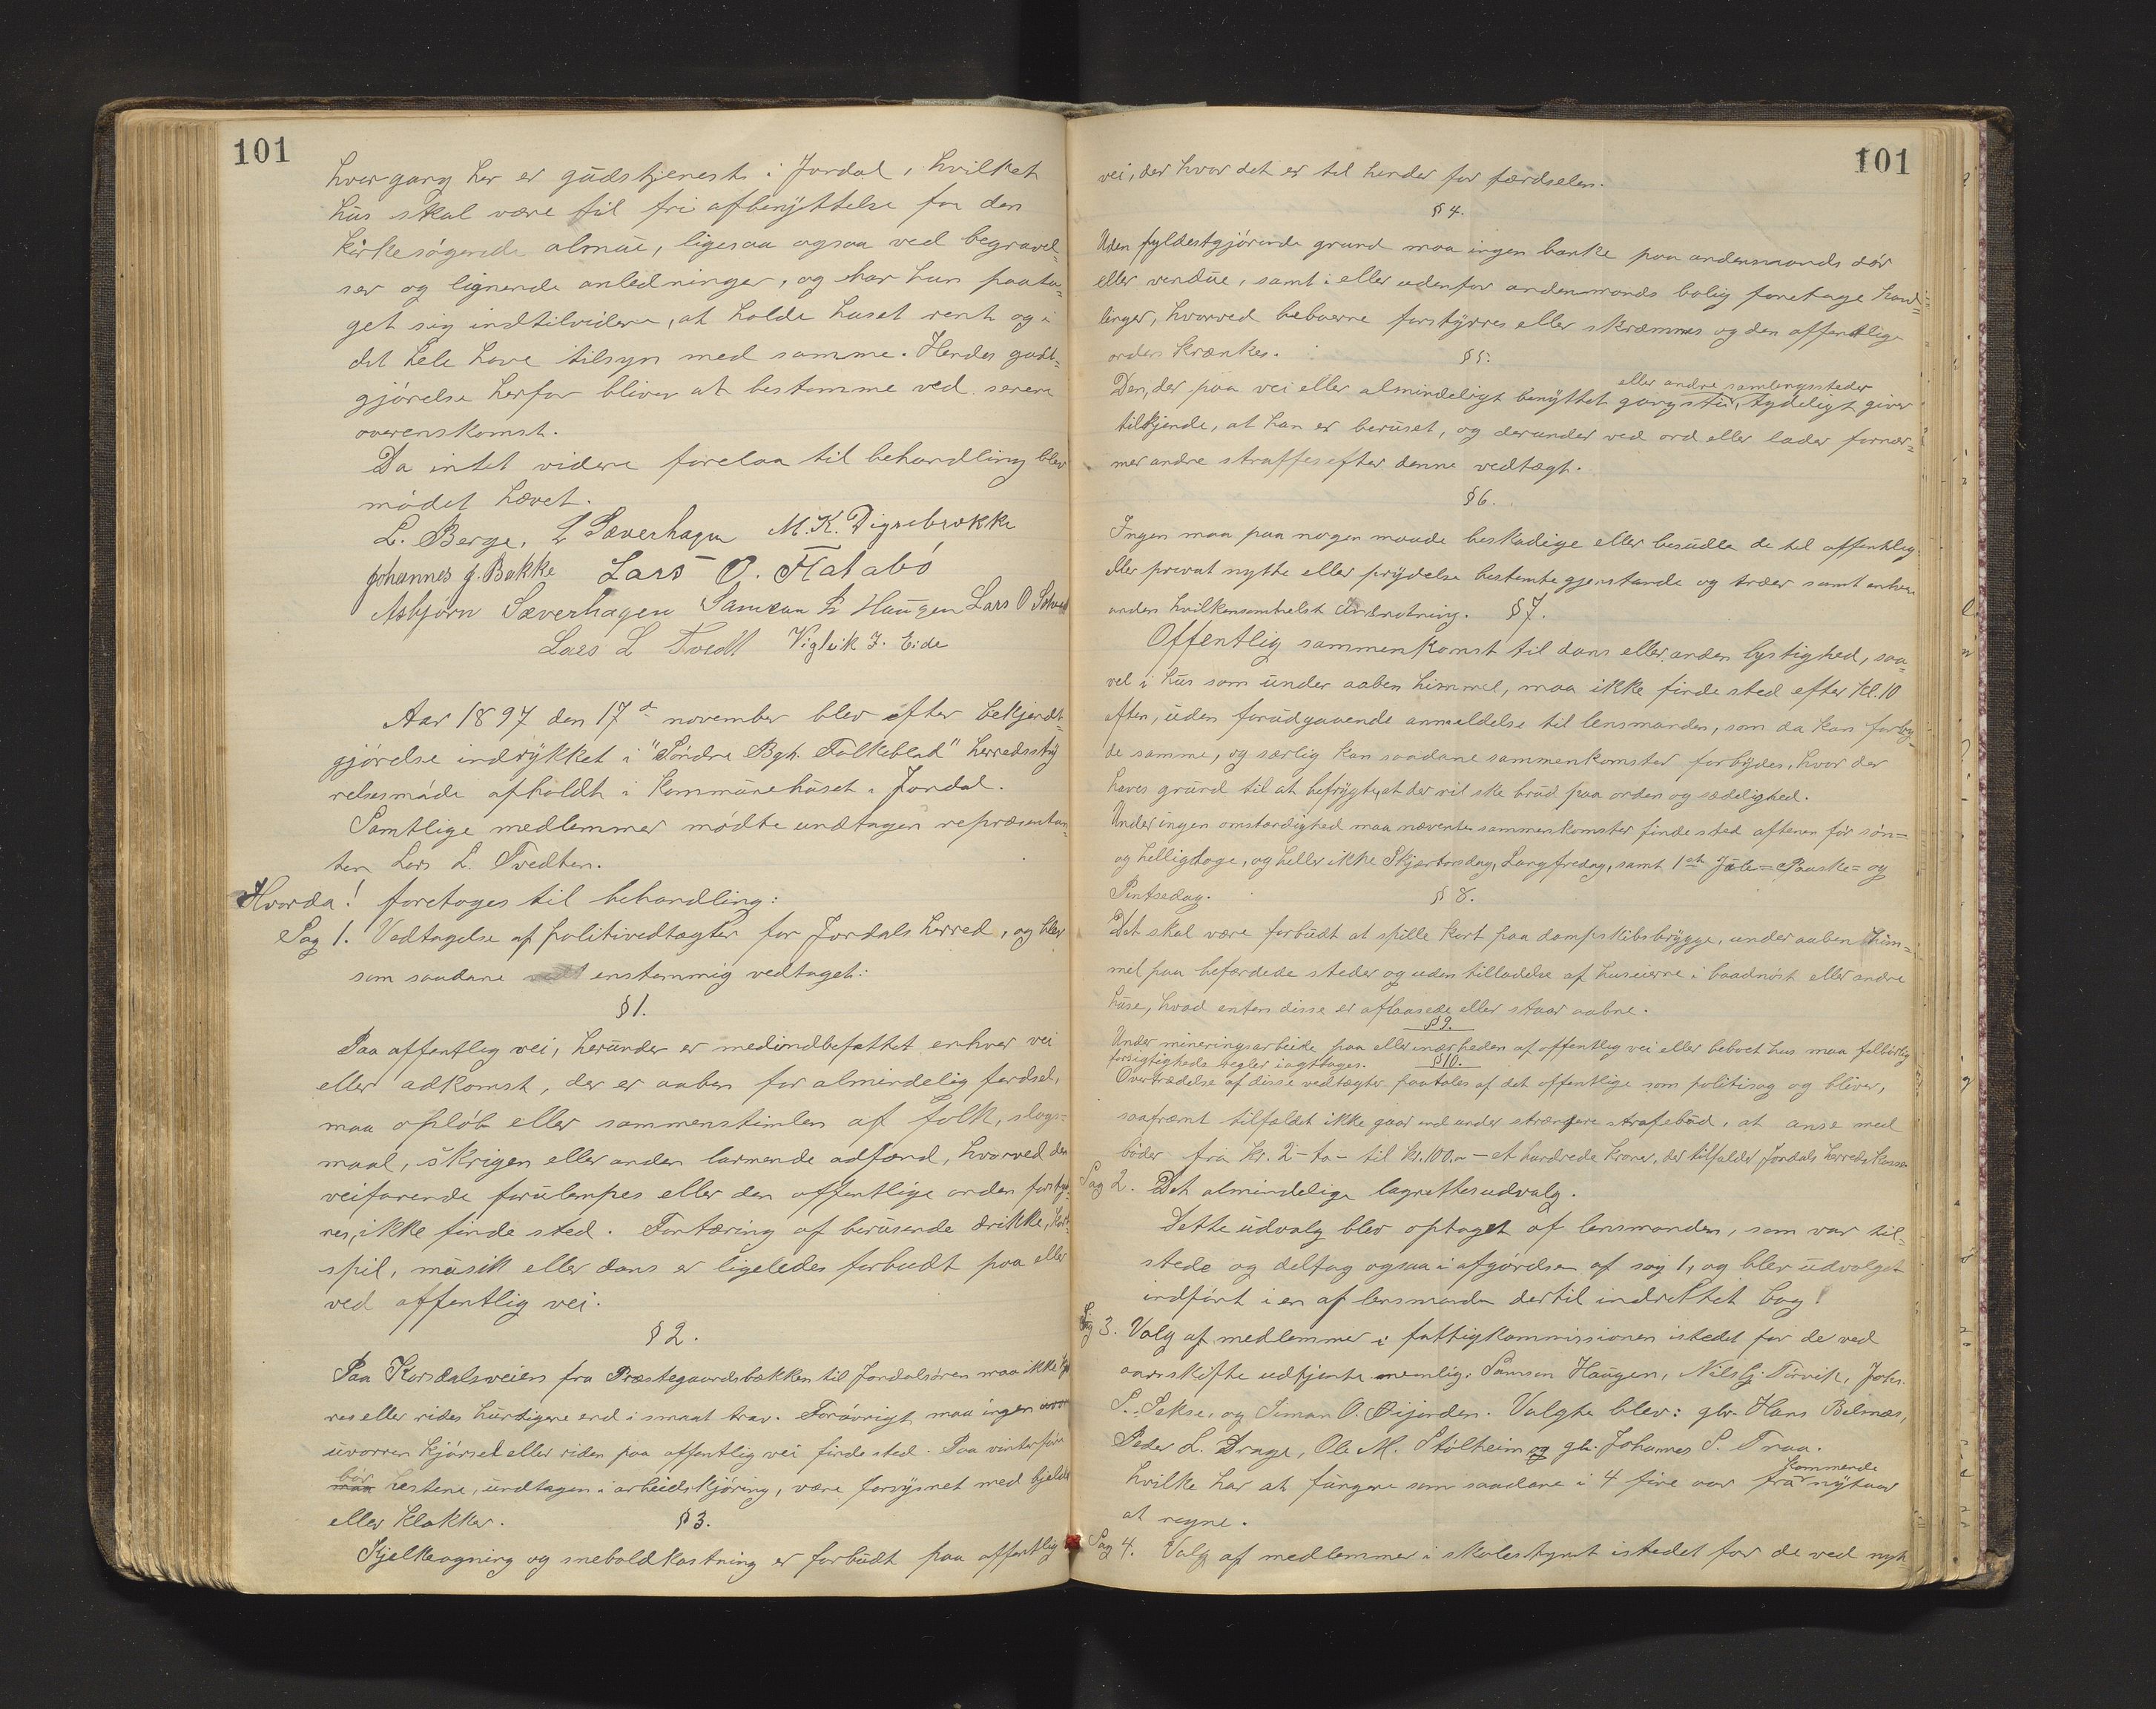 101
hver gang her er gudstjeneste i Jondal, hvilket
hus skal være til fri afbenyttelse for den
kirkesøgende almue, ligesaa ogsaa ved begravel=
ser og lignende anledninger, og har hun paata=
get sig indtilvidere, at holde huset rent og i
det hele have tilsyn med samme. Hendes godt=
gjørelse herfor bliver at bestemme ved senere
overenskomst.
Da intet videre forelaa til behandling blev
mødet hævet.
L. Berge. L Sæverhagen M.K. Digrebrække
Johannes J. Bakke Lars O. Flatabø
Asbjørn Sæverhagen Samson L Haugen Lars O
Lars L Tvedt Vigleik J. Eide
Aar 1897 den 17de november blev efter bekjendt=
gjørelse indrykket i "Søndre Bgh. Folkeblad" herredssty
relsesmøde afholdt i kommunehuset i Jondal.
Samtlige medlemmer mødte undtagen repræsentan=
ten Lars L. Tvedten.
Hvorda! foretoges til behandling:
Sag 1. Vedtagelse af politivedtægter for Jondals herred, og blev
som saadane enstemmig vedtaget:
§ 1.
Paa offentlig vei, herunder er medindbefattet enhver vei
eller adkomst, der er aaben for almindelig færdsel,
maa opløb eller sammenstimlen af folk, slags=
maal, skrigen eller anden larmende adfærd, hvorved den
veifarende forulempes eller den offentlige orden forstyr=
res, ikke finde sted. Fortæring af berusende drikke, kort=
spil, musik eller dans er ligeledes forbudt paa eller
ved offentlig vei.
§ 2.
Paa Korsdalsveien fra Præstegaardsbækken til Jondalsøren maa ikke kjø
res eller rides hurtigere end i smaat trav. Forøvrigt maa ingen
uvorren kjørsel eller riden paa offentlig vei finde sted. Paa vinterføre
bør
maa hestene, undtagen i arbeidskjøring, være forsynet med bjelde
eller klokker. § 3.
Kjelkeagning og sneboldkastning er forbudt paa offentlig
101
vei, der hvor det er til hinder for færdselen.
§ 4.
Uden fyldestgjørende grund maa ingen banke paa andenmands dør
eller vendue, samt i eller udenfor andenmands bolig foretage hand=
linger, hvorved beboerne forstyrres eller skræmmes og den offentlige
orden krænkes.
§ 5.
eller andre samlingssteder
Den, der paa vei eller almindeligt benyttet gangsti, tydeligt giver
tilkjende, at han er beruset, og derunder ved ord eller lader fornær=
mer andre straffes efter denne vedtægt.
§ 6.
Ingen maa paa nogen maade beskadige eller besudle de til offentlig
eller privat nytte eller prydelse bestemte gjenstande og træer samt enhver
anden hvilkensomhelst indretning. § 7.
Offentlig sammenkomst til dans eller anden lystighed, saa=
vel i hus som under aaben himmel, maa ikke finde sted efter kl. 10
aften, uden forudgaaende anmeldelse til lensmanden, som da kan forby=
de samme, og særlig kan saadane sammenkomster forbydes, hvor der
haves grund til at befrygte, at der vil ske brud paa orden og sædelighed.
Under ingen omstændighed maa nævente sammenkomster finde sted aftenen før søn=
og helligdage, og heller ikke Skjærtorsdag, Langfredag, samt 1ste Jule= Paaske= og
Pintsedag.
§ 8.
Det skal være forbudt at spille kort paa dampskibsbrygge, under aaben him=
mel paa befærdede steder og uden tilladelse af huseierne i baadnøst eller andre
huse, hvad enten disse er aflaasede eller staar aabne.
§ 9.
Under mineringsarbeide paa eller i nærheden af offentlig vei eller beboet hus maa tilbørlig
forsigtigheds regler iagttages. § 10.
Overtrædelse af disse vedtægter paatales af det offentlige som politisag og bliver,
saafræmt tilfældet ikke gaar ind under strængere strafebud, at anse med
bøder fra kr. 2 - to - til kr. 100,- - et hundrede kroner, der tilfalder Jondals herredskasse
Sag 2. Det almindelige lagrettesudvalg.
Dette udvalg blev optaget af lensmanden, som var til=
stede og deltog ogsaa i afgørelsen af sag 1, og blev udvalget
indført i en af lensmanden dertil indrettet bog!
Sag 3. Valg af medlemmer i fattigkommissionen istedet for de ved
aarsskifte udtjente nemlig: Samson Haugen, Nils G. Tørvik, Johs.
S. Sekse, og Simon O. Øijorden. Valgte blev: gbr. Hans Belnæs,
Peder L. Drage, Ole M. Stølheim og gbr. Johannes S. Traa.
kommende
hvilke har at fungere som saadane i 4 fire aar fra nytaar
at regne.
Sag 4. Valg af medlemmer i skolestyret istedet for de ved nyt